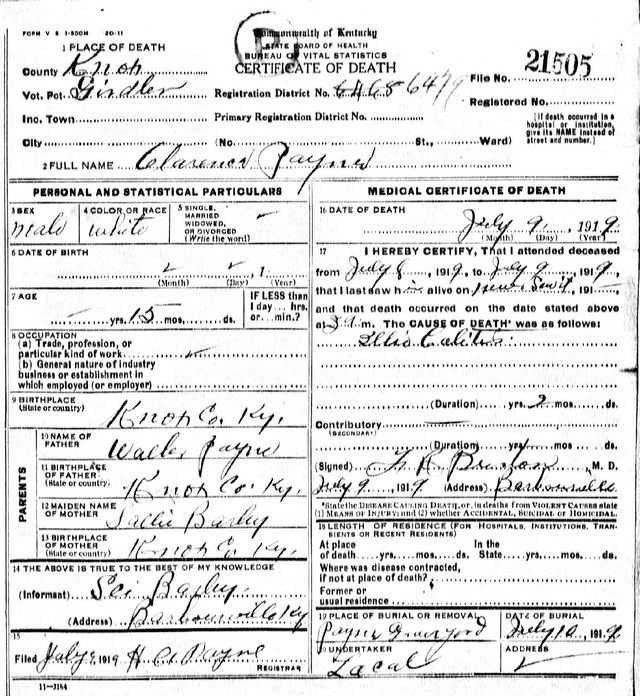 FORM V S 1-500M 20-11
Commonwealth of Kentucky
STATE BOARD OF HEALTH
BUREAU OF VITAL STATISTICS
CERTIFICATE OF DEATH
1 PLACE OF DEATH
County Knox
Vot. Pct. Girdler
Inc. Town
City
Registration District No. 6479
Primary Registration District No.
(No. St., Ward)
File No. 21505
Registered No.
[If death occurred in a
hospital or institution,
give its NAME instead of
street and number.]
2 FULL NAME Clarence Payne
PERSONAL AND STATISTICAL PARTICULARS
3 SEX
male
4 COLOR OR RACE
white
5 SINGLE,
MARRIED
WIDOWED,
OR DIVORCED
(Write the word)
6 DATE OF BIRTH
, 1
(Month) (Day) (Year)
7 AGE
yrs. 15 mos. ds.
IF LESS than
1 day... hrs.
or... min.?
8 OCCUPATION
(a) Trade, profession, or
particular kind of work
(b) General nature of industry
business or establishment in
which employed (or employer)
9 BIRTHPLACE
(State or country)
Knox Co. Ky.
PARENTS
10 NAME OF
FATHER
Walter Payne
11 BIRTHPLACE
OF FATHER
(State or country)
Knox Co. Ky.
12 MAIDEN NAME
OF MOTHER
Sallie Bailey
13 BIRTHPLACE
OF MOTHER
(State or country)
Knox Co. Ky.
14 THE ABOVE IS TRUE TO THE BEST OF MY KNOWLEDGE
(Informant) Bailey
(Address) Barbourville Ky
15
Filed July 9 1919 H C Payne
REGISTRAR
11-3184
MEDICAL CERTIFICATE OF DEATH
16 DATE OF DEATH
July 9, 1919
(Month) (Day) (Year)
17 I HEREBY CERTIFY, That I attended deceased
from July 8, 1919, to July 9, 1919,
that I last saw him alive on , 191
and that death occurred on the date stated above
at m. The CAUSE OF DEATH* was as follows:
Illio Calitus
(Duration) yrs. 2 mos. ds.
Contributory
(SECONDARY)
(Duration) yrs. mos. ds.
(Signed) M. D.
July 9, 1919 (Address) Barbourville
*State the DISEASE CAUSING DEATH, or, in deaths from VIOLENT CAUSES state
(1) MEANS OF INJURY; and (2) whether ACCIDENTAL, SUICIDAL or HOMICIDAL.
18 LENGTH OF RESIDENCE (FOR HOSPITALS, INSTITUTIONS, TRAN-
SIENTS OR RECENT RESIDENTS)
At place In the
of death yrs. mos. ds. State yrs. mos. ds.
Where was disease contracted,
if not at place of death?
Former or
usual residence
19 PLACE OF BURIAL OR REMOVAL
Payne Graveyard
DATE OF BURIAL
July 10, 1919
20 UNDERTAKER
Local
ADDRESS